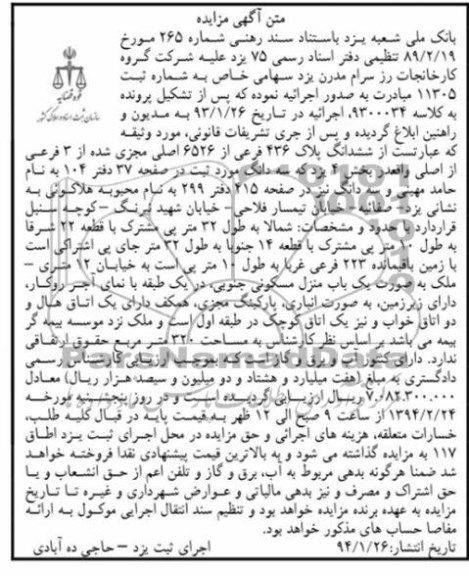 متن آگهی مزایده
بانک ملی شعبه یزد باستناد سند رهنی شماره ۲۶۵ مورخ
۸۹/۲/۱۹ تنظیمی دفتر اسناد رسمی ۷۵ یزد علیه شرکت گروه
کارخانجات رز سرام مدرن یزد سهامی خاص به شماره ثبت
۱۱۳۰۵ مبادرت به صدور اجرائیه نموده که پس از تشکیل پرونده
به کلاسه ۹۳۰۰۰۳۴، اجرائیه در تاریخ ۹۳/۱/۲۶ به مدیون و
راهنین ابلاغ گردیده و پس از جری تشریفات قانونی، مورد وثیقه
که عبارتست از ششدانگ پلاک ۴۳۶ فرعی از ۶۵۲۶ اصلی مجزی شده از ۳ فرعی
از اصلی واقعدر بخش ۴ یزد که سه دانگ مورد ثبت در صفحه ۳۷ دفتر ۱۰۴ به نام
حامد مهینی و سه دانگ نیز در صفحه ۴۱۵ دفتر ۲۹۹ به نام محبوبه هلاکوئی به
نشانی یزد- صفائیه- خیابان تیمسار فلاحی- خیابان شهید بیرنگ - کوچه سنبل
قراردارد با حدود و مشخصات: شمالا به طول ۳۲ متر پی مشترک با قطعه ۲۲ شرقا
به طول ۱۰ متر پی مشترک با قطعه ۱۴ جنوبا به طول ۳۲ متر جای پی اشتراکی است
با زمین باقیمانده ۲۲۳ فرعی غربا به طول ۱۰ متر پی است به خیابان ۱۲ متری -
ملک به صورت یک باب منزل مسکونی جنوبی، در یک طبقه با نمای آجر روکار،
دارای زیرزمین، به صورت انباری، پارکینگ مجزی، همکف دارای یک اتاق هال و
دو اتاق خواب و نیز یک اتاق کوچک در طبقه اول است و ملک نزد موسسه بیمه گر
بیمه می باشد بر اساس نظر کارشناس به مساحت ۳۲۰ متر مربع حقوق ارتفاقی
ندارد. دارای کنتور آب و برق و گاز است که بموجب ارزیابی کارشناس رسمی
دادگستری به مبلغ (هفت میلیارد و هشتاد و دو میلیون و سیصد هزار ریال) معادل
۷،۰۸۲،۳۰۰،۰۰۰ ریال ارزیابی گردیده است و در روز پنجشنبه مورخه
۱۳۹۴/۲/۲۴ از ساعت ۹ صبح الی ۱۲ ظهر به قیمت پایه در قبال کلیه طلب،
خسارات متعلقه، هزینه های اجرائی و حق مزایده در محل اجرای ثبت یزد اطاق
۱۱۷ به مزایده گذاشته می شود و به بالاترین قیمت پیشنهادی نقدا فروخته خواهد
شد ضمنا هرگونه بدهی مربوط به آب، برق و گاز و تلفن اعم از حق انشعاب و یا
حق اشتراک و مصرف و نیز بدهی مالیاتی و عوارض شهرداری و غیره تا تاریخ
مزایده به عهده برنده مزایده خواهد بود و تنظیم سند انتقال اجرایی موکول به ارائه
مفاصا حساب های مذکور خواهد بود.
تاریخ انتشار: ۹۴/۱/۲۶ اجرای ثبت یزد - حاجی ده آبادی
قوه قضائیه
سازمان ثبت اسناد و املاک کشور
ParsNamadData